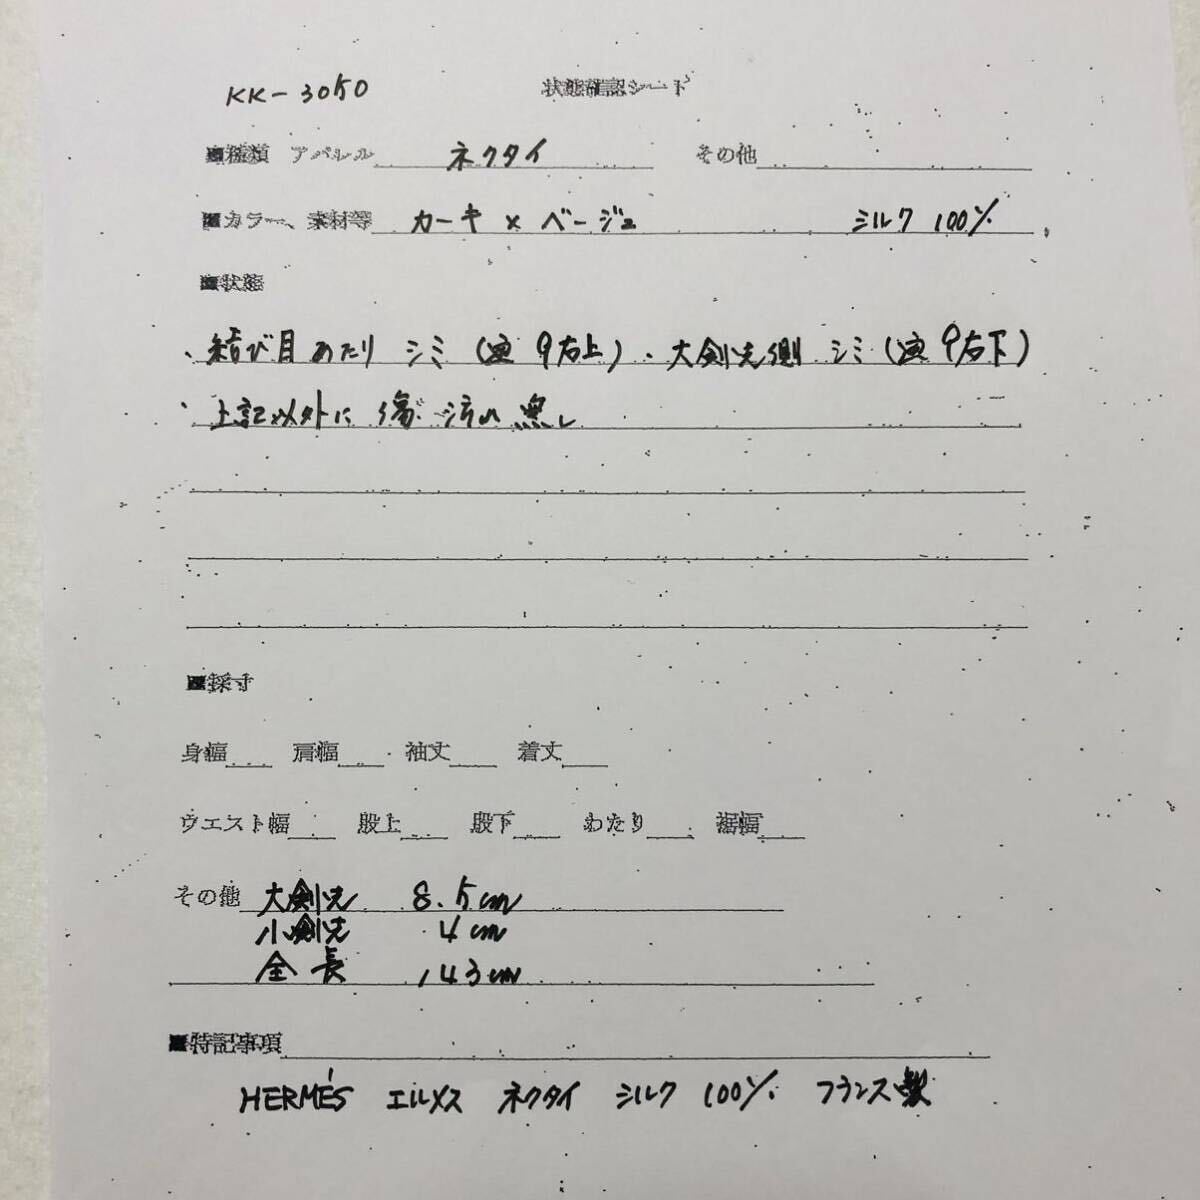 KK-3050 状態確認シート
■種類 アパレル ネクタイ その他
■カラー、素材等 カーキ × ベージュ シルク 100%
■状態
・結び目あたり シミ (画9右上)・大剣先側 シミ (画9右下)
・上記以外に 傷 汚れ 無し
■採寸
身幅 肩幅 袖丈 着丈
ウエスト幅 股上 股下 わたり 裾幅
その他 大剣先 8.5cm
小剣先 4cm
全長 143cm
■特記事項
HERMÉS エルメス ネクタイ シルク 100% フランス製